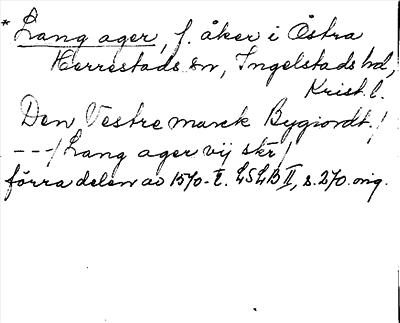 * Lang ager, f. åker i Östra
Herrestads sn, Ingelstads hd,
Krist. l.
Den Vestre marck Bygiordt. /
---/ Lang ager vij skr /
förra delen av 1570-t. LSLB II, s. 270. orig.